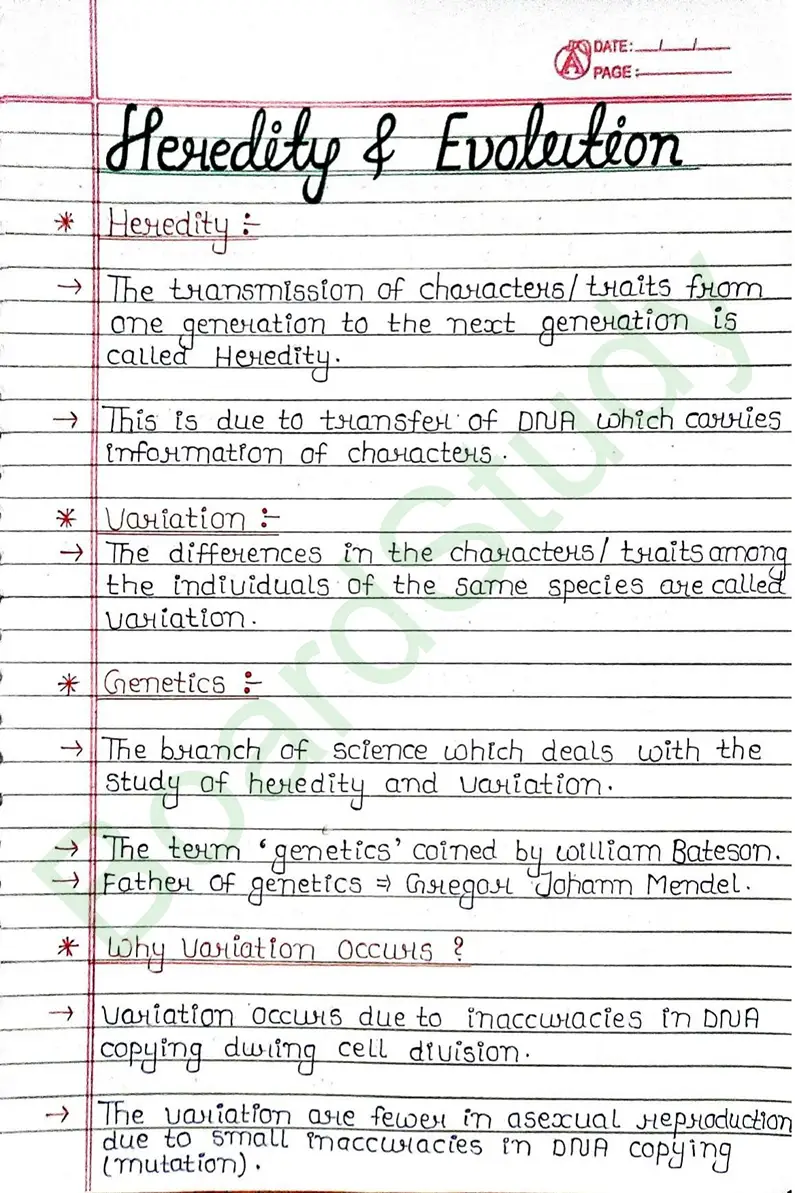 DATE: __/__/__
PAGE: ______
Heredity & Evolution
* Heredity :-
→ The transmission of characters/traits from
one generation to the next generation is
called Heredity.
→ This is due to transfer of DNA which carries
information of characters.
* Variation :-
→ The differences in the characters/traits among
the individuals of the same species are called
variation.
* Genetics :-
→ The branch of science which deals with the
study of heredity and variation.
→ The term ‘genetics’ coined by william Bateson.
→ Father of genetics ⇒ Gregor Johann Mendel.
* Why Variation occurs ?
→ Variation occurs due to inaccuracies in DNA
copying during cell division.
→ The variation are fewer in asexual reproduction
due to small inaccuracies in DNA copying
(mutation).
BoardStudy